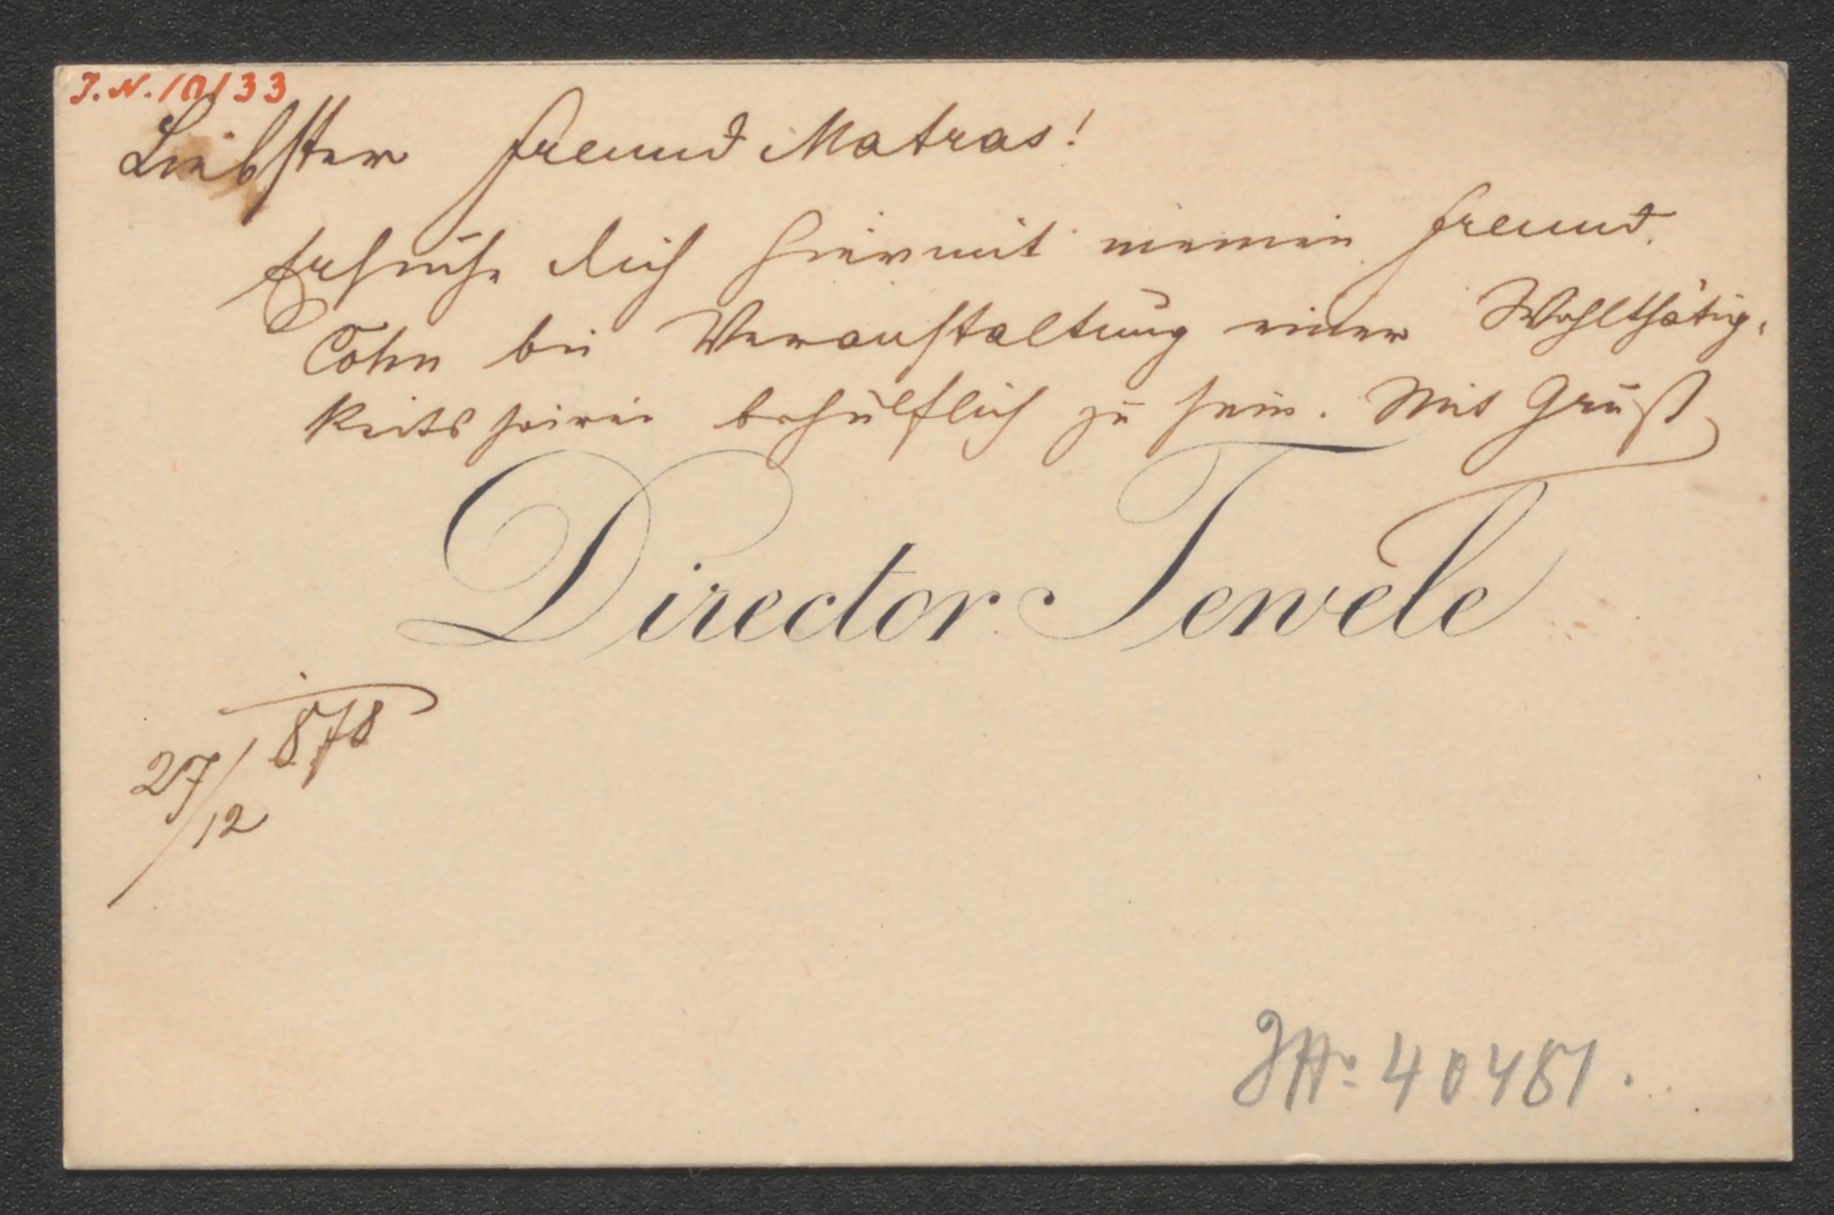 J.N. 10133
Liebster Freund Matras!
Ersuche dich hiermit meinen Freund
Cohn bei Veranstaltung einer Wohlthätig-
keitssoirée behülflich zu sein. Mit Gruß
Director Tewele
27/12 878
40481.